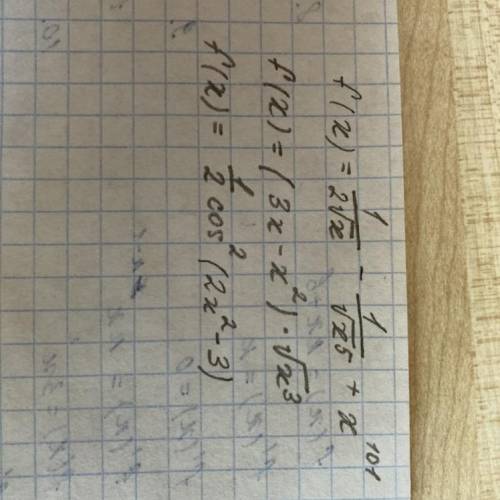 f'(x) = 1/(2√x) - 1/√x⁵ + x¹⁰¹
f'(x) = (3x - x²) · √x³
f'(x) = 1/2 cos² (2x² - 3)